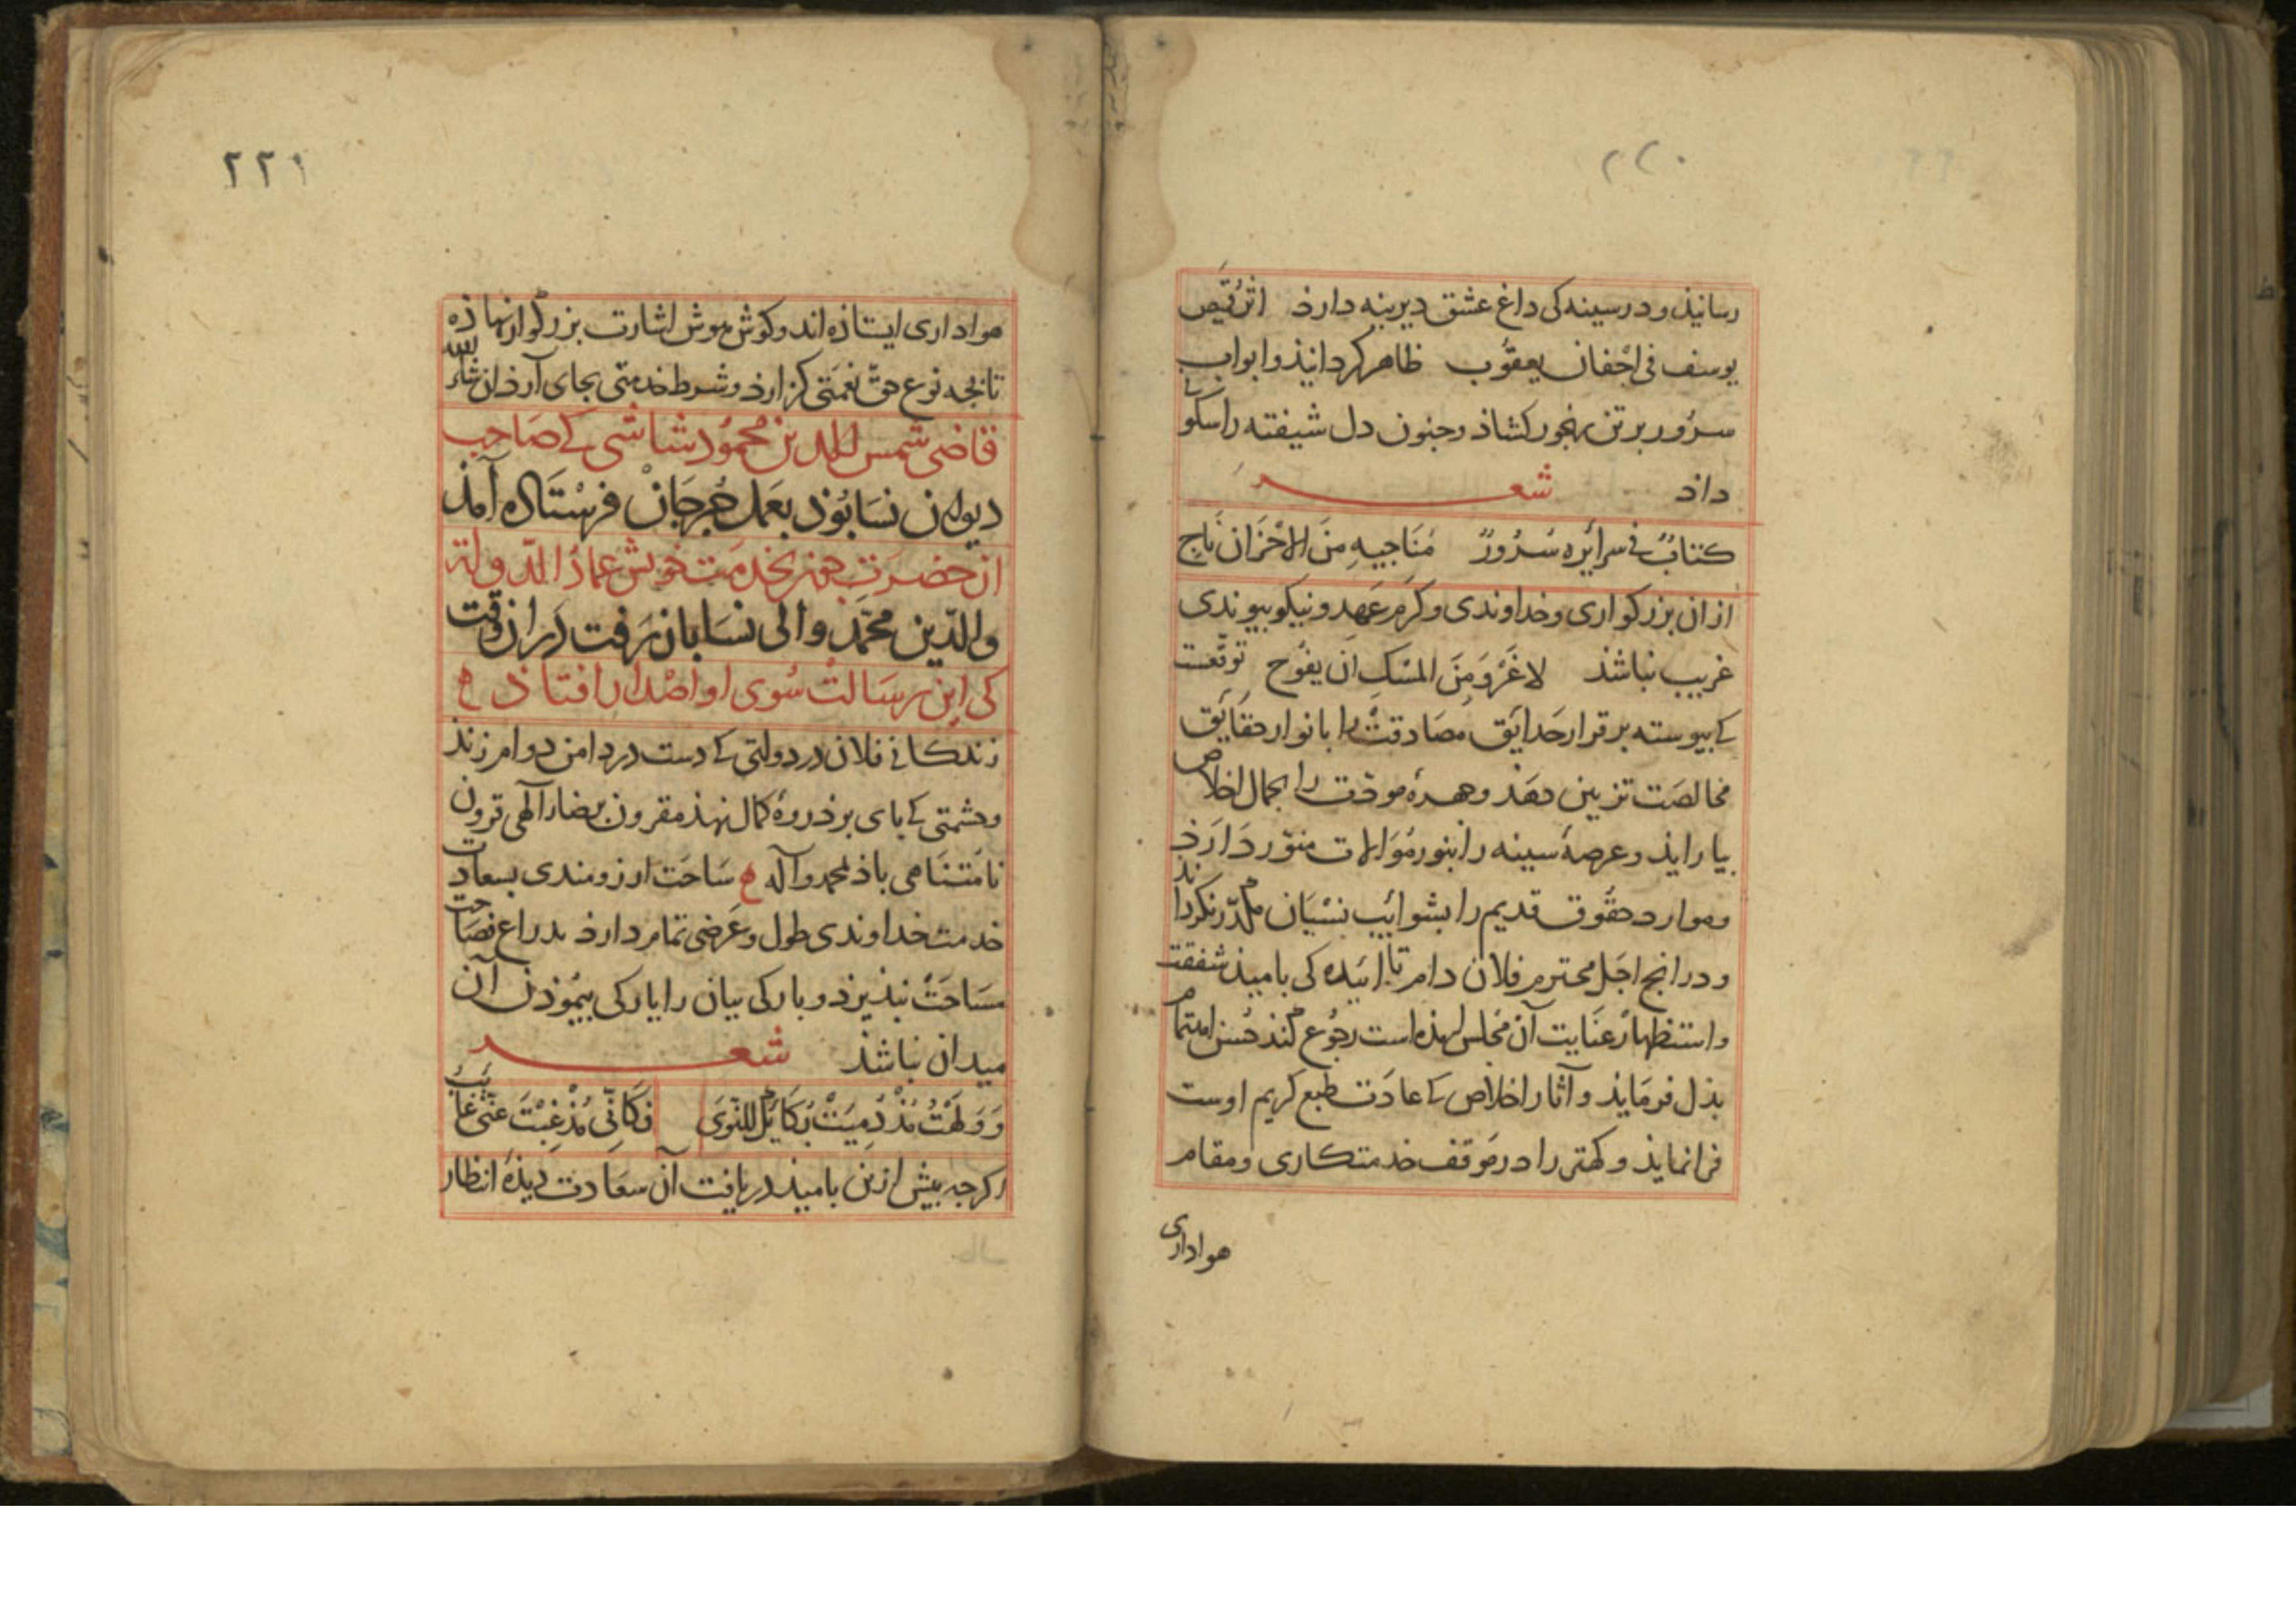 ۲۲۰
رسانیذ و در سینه کی داغ عشق دیرینه دارذ اثر قمیص
یوسف فی اجفان یعقوب ظاهر کردانیذ و ابواب
سرور بر تن رنجور کشاذ و جنون دل شیفته را سکونی
داذ شعر
کتابٌ فی سرائره سُرُورٌ مُنَاجیهِ مِنَ الاَحْزَان نَاجٍ
از ان بزرکواری و خداوندی و کرم عهد و نیکو بیوندی
غریب نباشذ لا غَرْوَ مِنَ المسْکِ انَ یفُوح توقعست
کے بیوسته بر قرار حَدایَق مصَادقتْ را بانوار حقَایَق
مخالصَت تزیین دهَذ و جهرهٔ موذت را بجمال اخلاص
بیارایذ و عرصهٔ سینه را بنور مُوَالات منوّر دَارَذ
و موارد حقُوق قدیم را بشوائب نسْیَان مکدّر نکرداند
و در انج اجَل محترم فلان دام تاییده کی بامیذ شفقت
و استظهار عنَایت آن مجَلس لهذه است رجُوع کند حُسن اهتمام
بذل فرمَایذ و آثار اخلاص کے عادَت طبع کریم اوست
فرا نمایذ و کهتر را در مَوقف خدمتکاری و مقام
هواداری
۲۲۱
هواداری ایستاذه اند و کوش هوش اشارت بزرکوار نهاذه
تا بجه نوع حق نعمَتی کزارذ و شرط خدمتی بجای آرذ ان شاء الله
قاضی شمس الدین محمُود شاشی کے صَاحب
دیوان نسَا بُوذ بعَمل جُرجَانْ فرسْتَاذه آمَذ
از حضرَت جون بخدمَت خویش عمادُ الدّولة
والدّین محمّد والی نسَا بازْ رَفت دَر ان وقت
کی این رسَالتْ سُوی او اصْدار افتاذ
زندکانی فلان در دولتی کے دست در دامن دوام زند
و حشمتی کے بای بر ذروهٔ کمال نهذ مقرون برضاء آلهی قرون
نامَتنَاهی باذ بمحمد و آله سَاحَت ارزومندی بسعادت
خدمت خداوندی طول و عَرضی تمام دارذ بذراع فصَاحت
مسَاحَتْ نبذیرذ و بارکی بیان را یارکی بیمُوذن آن
میدان نباشذ شعر
وَوَلهْتُ مُذْ زُمِّیَتْ رِکَابُکَ للنّوَی فکَانّی مُذْ غِبْتَ عنّی غَائبُ
اکرجه بیش ازین بامیذ دریافت آن سعَادت دیذهٔ انتظار